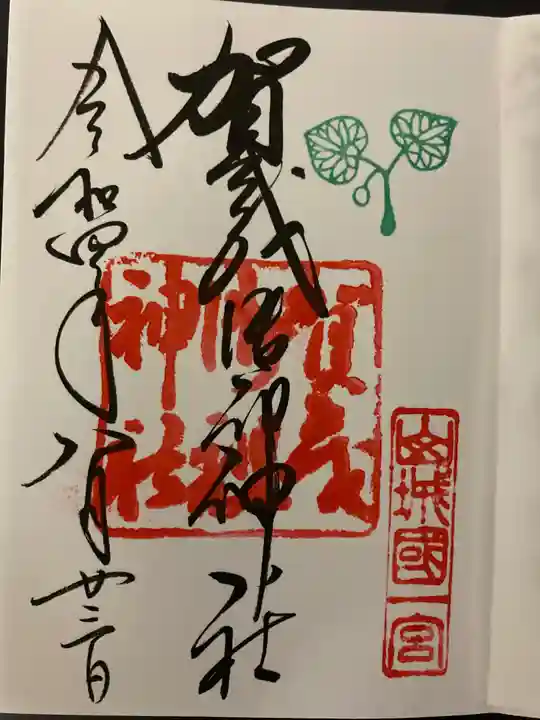 山城國一宮
賀茂御祖神社
賀茂
御祖
神社
令和四年八月廿三日